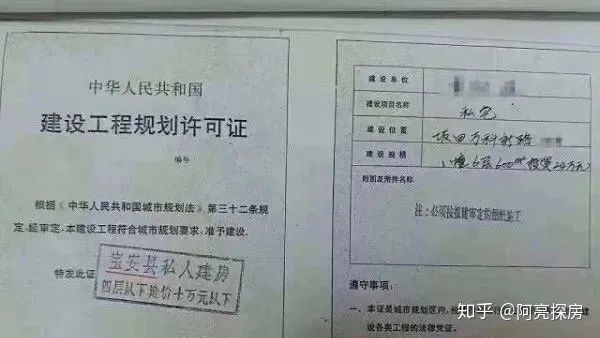 中华人民共和国
建设工程规划许可证
编号
根据《中华人民共和国城市规划法》第三十二条规
定,经审定,本建设工程符合城市规划要求,准予建设。
特发此证
宝安县私人建房
四层以下造价十万元以下
建设单位
建设项目名称 私宅
建设位置 坂田万科新路
建设规模 1幢6层600㎡
附图及附件名称
注:必须按报建审定的图纸施工
遵守事项:
一、本证是城市规划区内,
设各类工程的法律凭证。
知乎 @阿亮探房